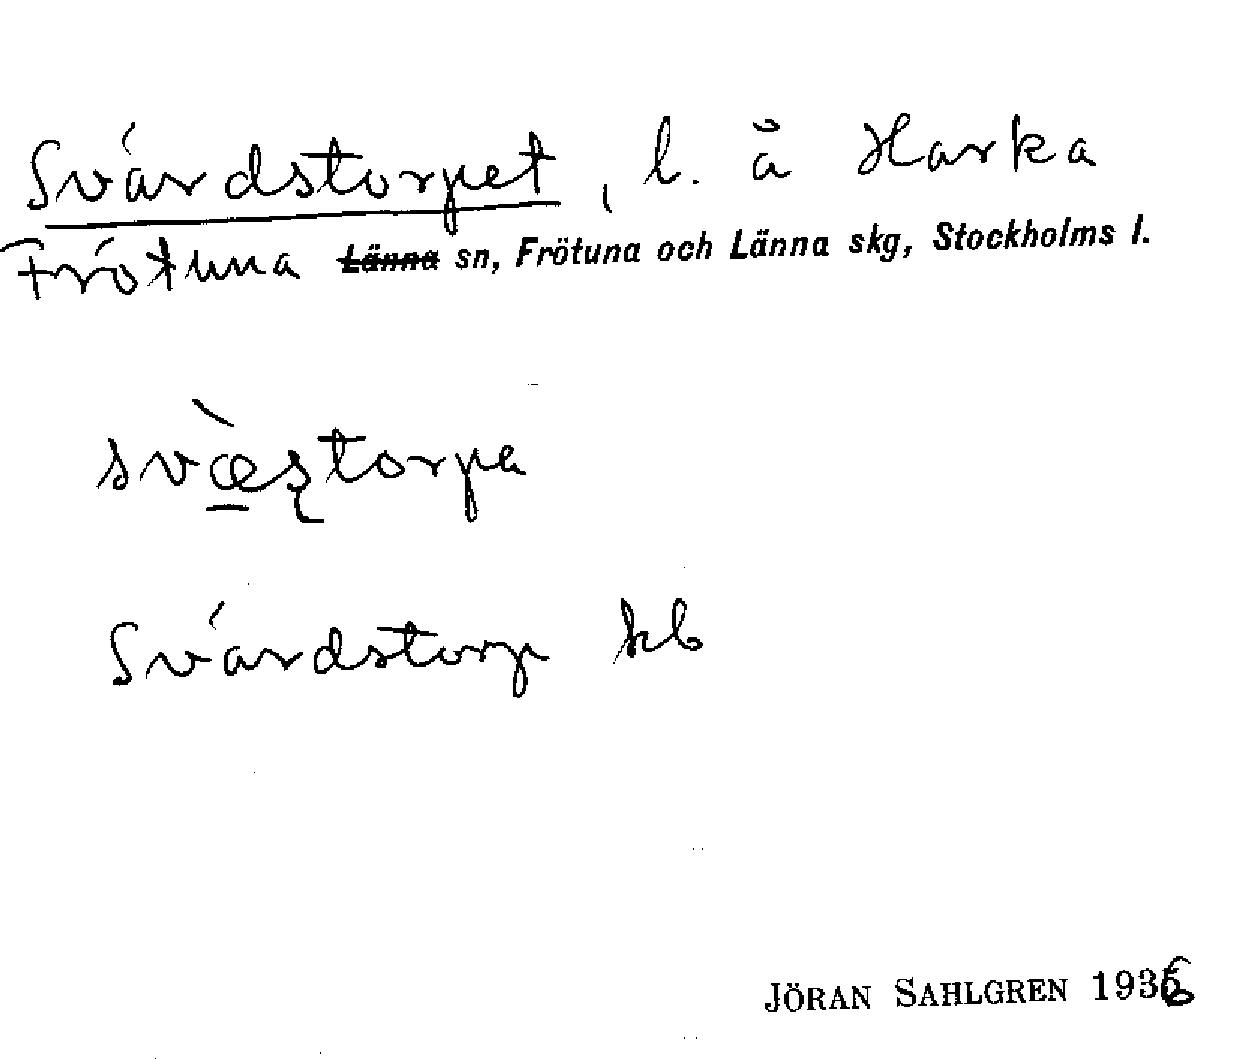 Svärdstorpet, l. å Harka
Frötuna Länna sn, Frötuna och Länna skg, Stockholms l.
svæ̀ștorpa
Svärdstorp kb
JÖRAN SAHLGREN 1936